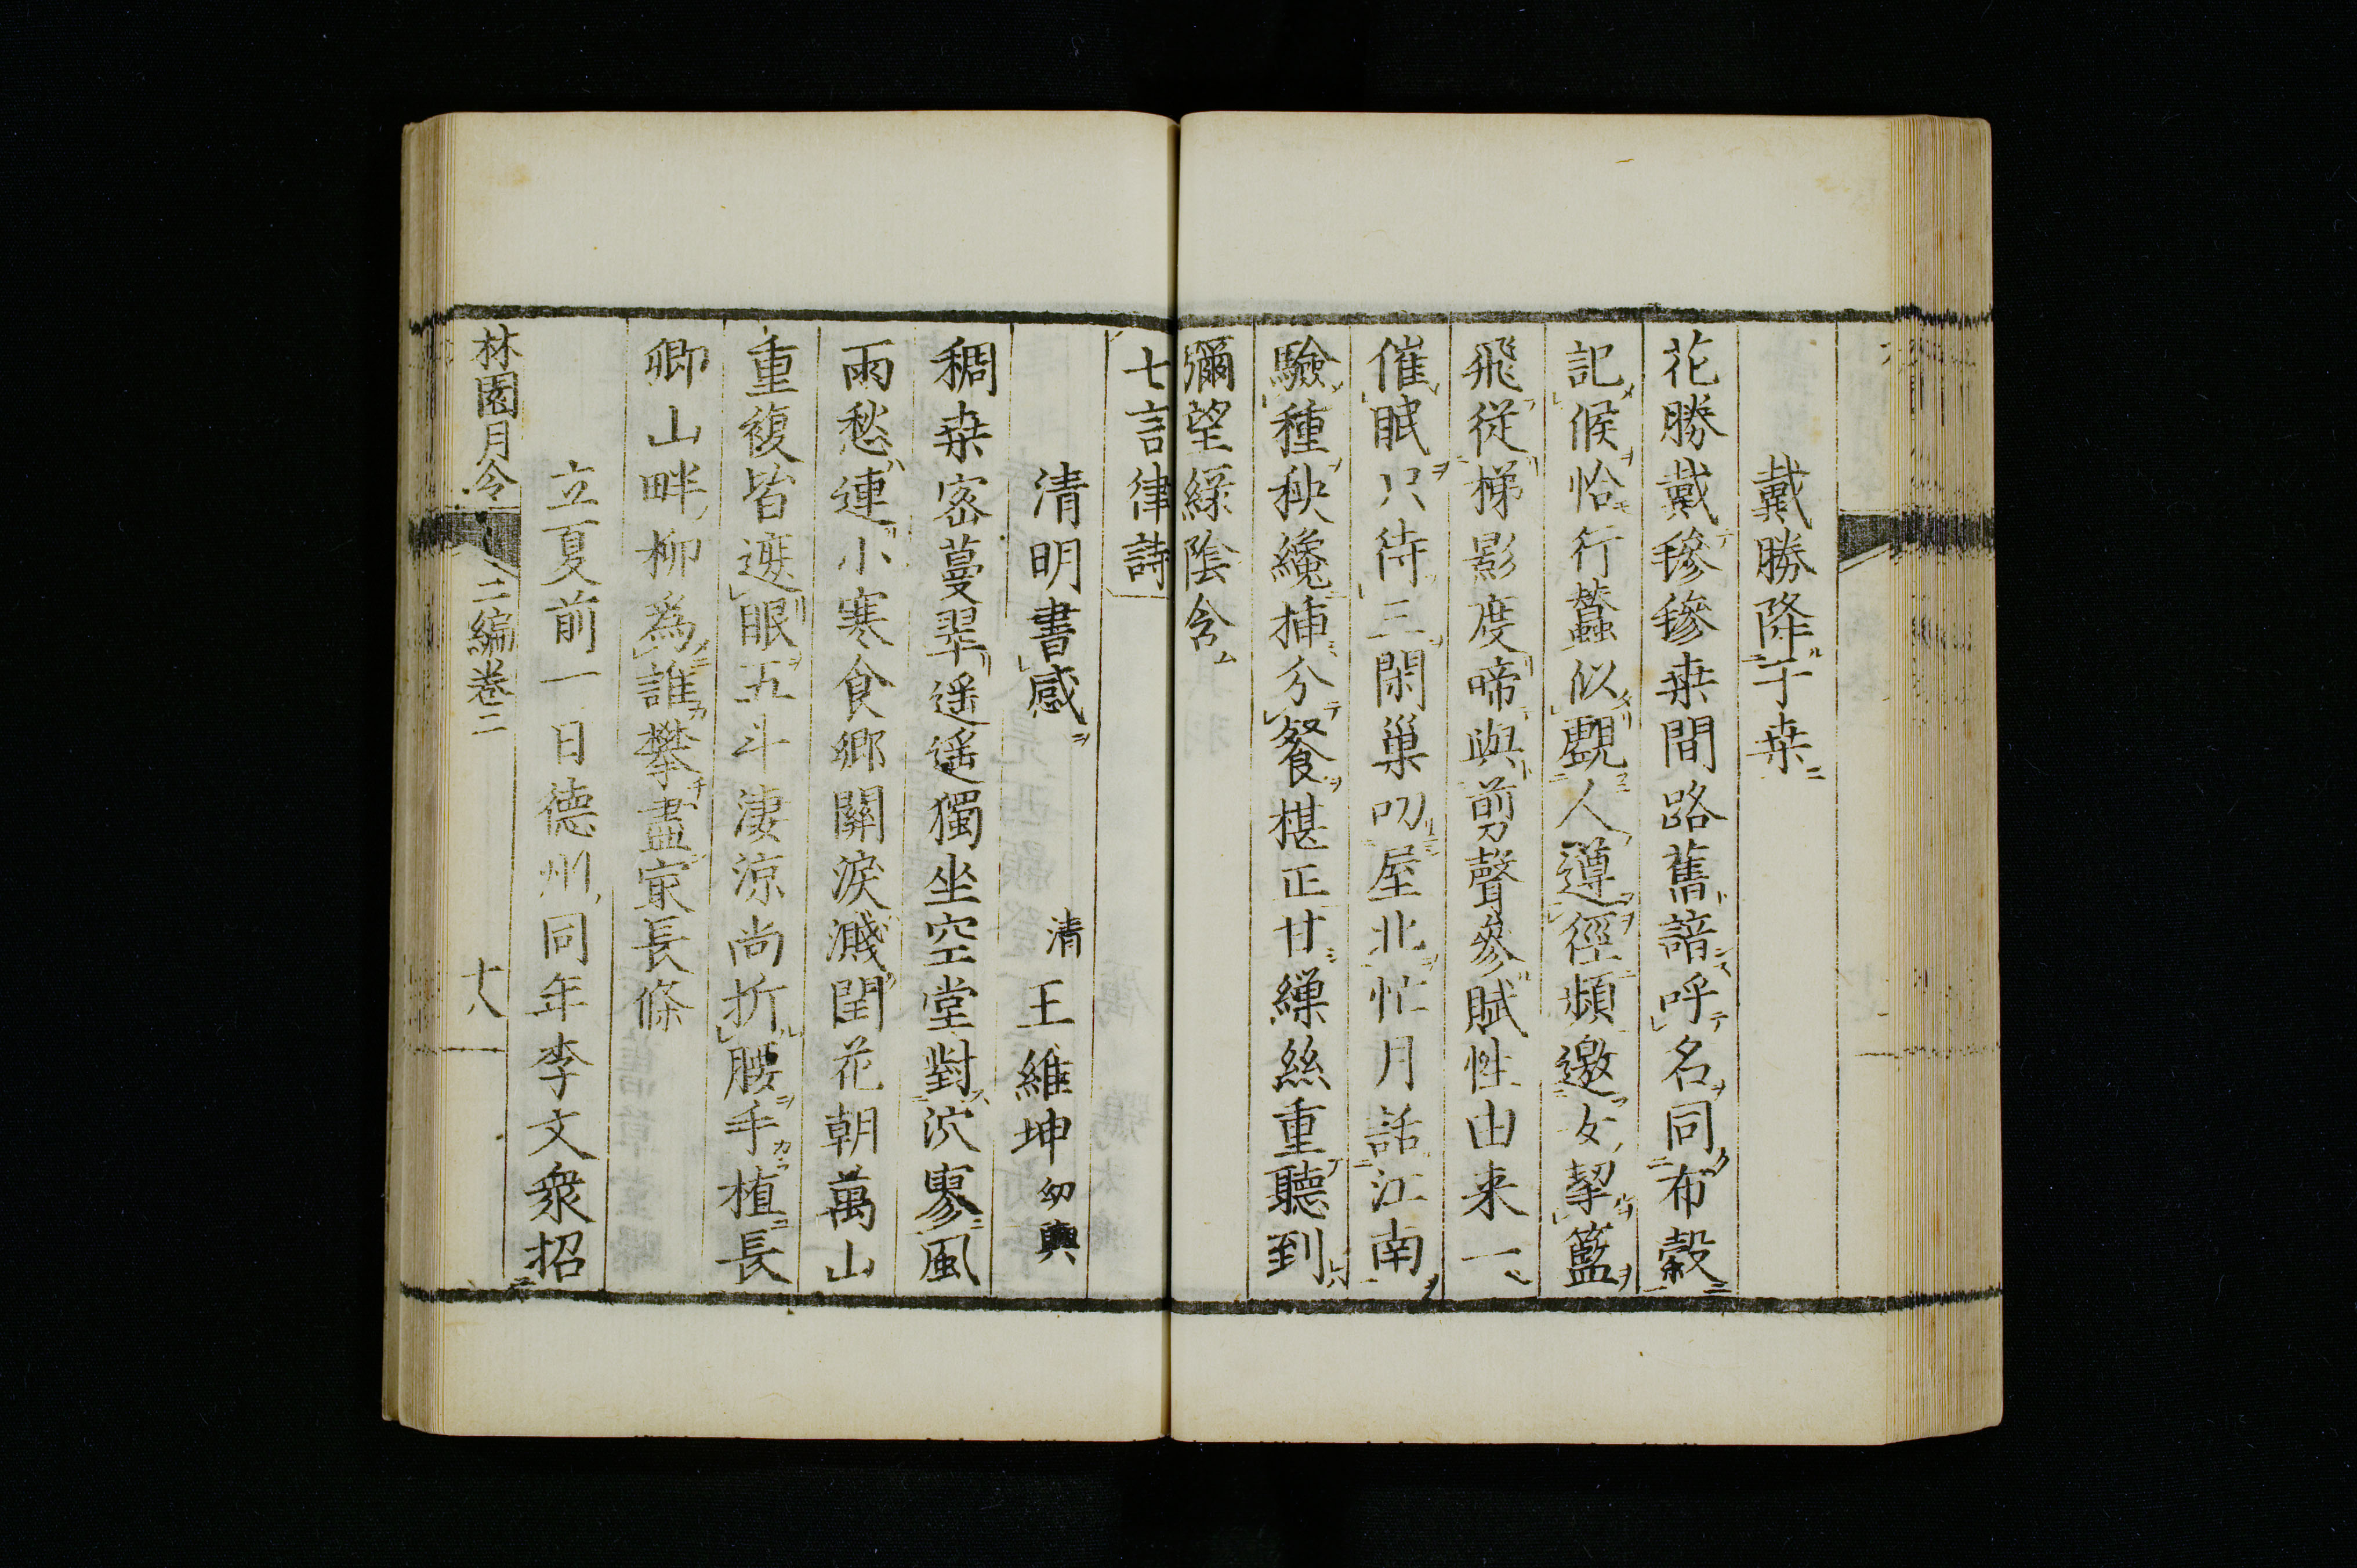 戴勝降于桒
花勝戴毿毿桒間路舊諳呼名同布穀
記候恰行蠶似覰人遵徑頻邀女挈籃
飛從梯影度啼與剪聲參賦性由来一
催眠只待三閑巢叨屋北忙月話江南
驗種秧纔揷分餐椹正甘繅絲重聽到
彌望綠陰含
七言律詩
清明書感 清王維坤幼輿
稠桒宻蔓翠遥遥獨坐空堂對泬寥風
雨愁連小寒食鄉關淚濺閏花朝萬山
重複皆遮眼五斗淒涼尚折腰手植長
卿山畔柳為誰攀盡寂長條
立夏前一日德州同年李文衆招
林園月令 二編卷二 十八